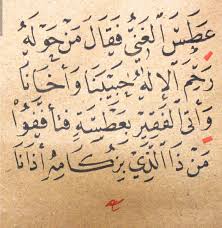 عَطِسَ الغَنِيُّ فَقَالَ مَنْ حَوْلَهُ
رَحِمَ الإِلهُ حَبِيبَنَا وَأَخَانَا
وَأَتَى الفَقِيرُ بِعَطْسِهِ فَتَأَفَّفُوا
مَنْ ذَا الَّذِيْ بِزُكَامِهِ أَذَانَا